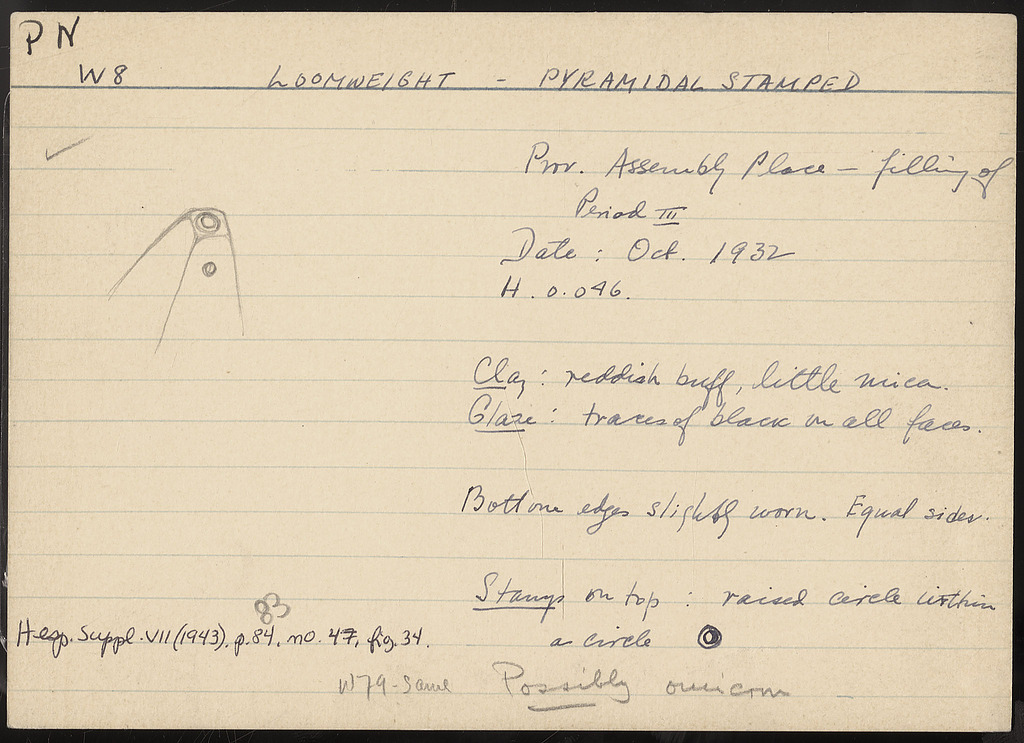 PN
W8 LOOMWEIGHT - PYRAMIDAL STAMPED
Prov. Assembly Place — filling of
Period III
Date : Oct. 1932
H. 0.046.
Clay : reddish buff, little mica.
Glaze : traces of black on all faces.
Bottom edges slightly worn. Equal sides.
Stamp on top : raised circle within
a circle
83
Hesp. Suppl. VII (1943), p. 84, no. 47, fig. 34.
W79 - Same Possibly omicron